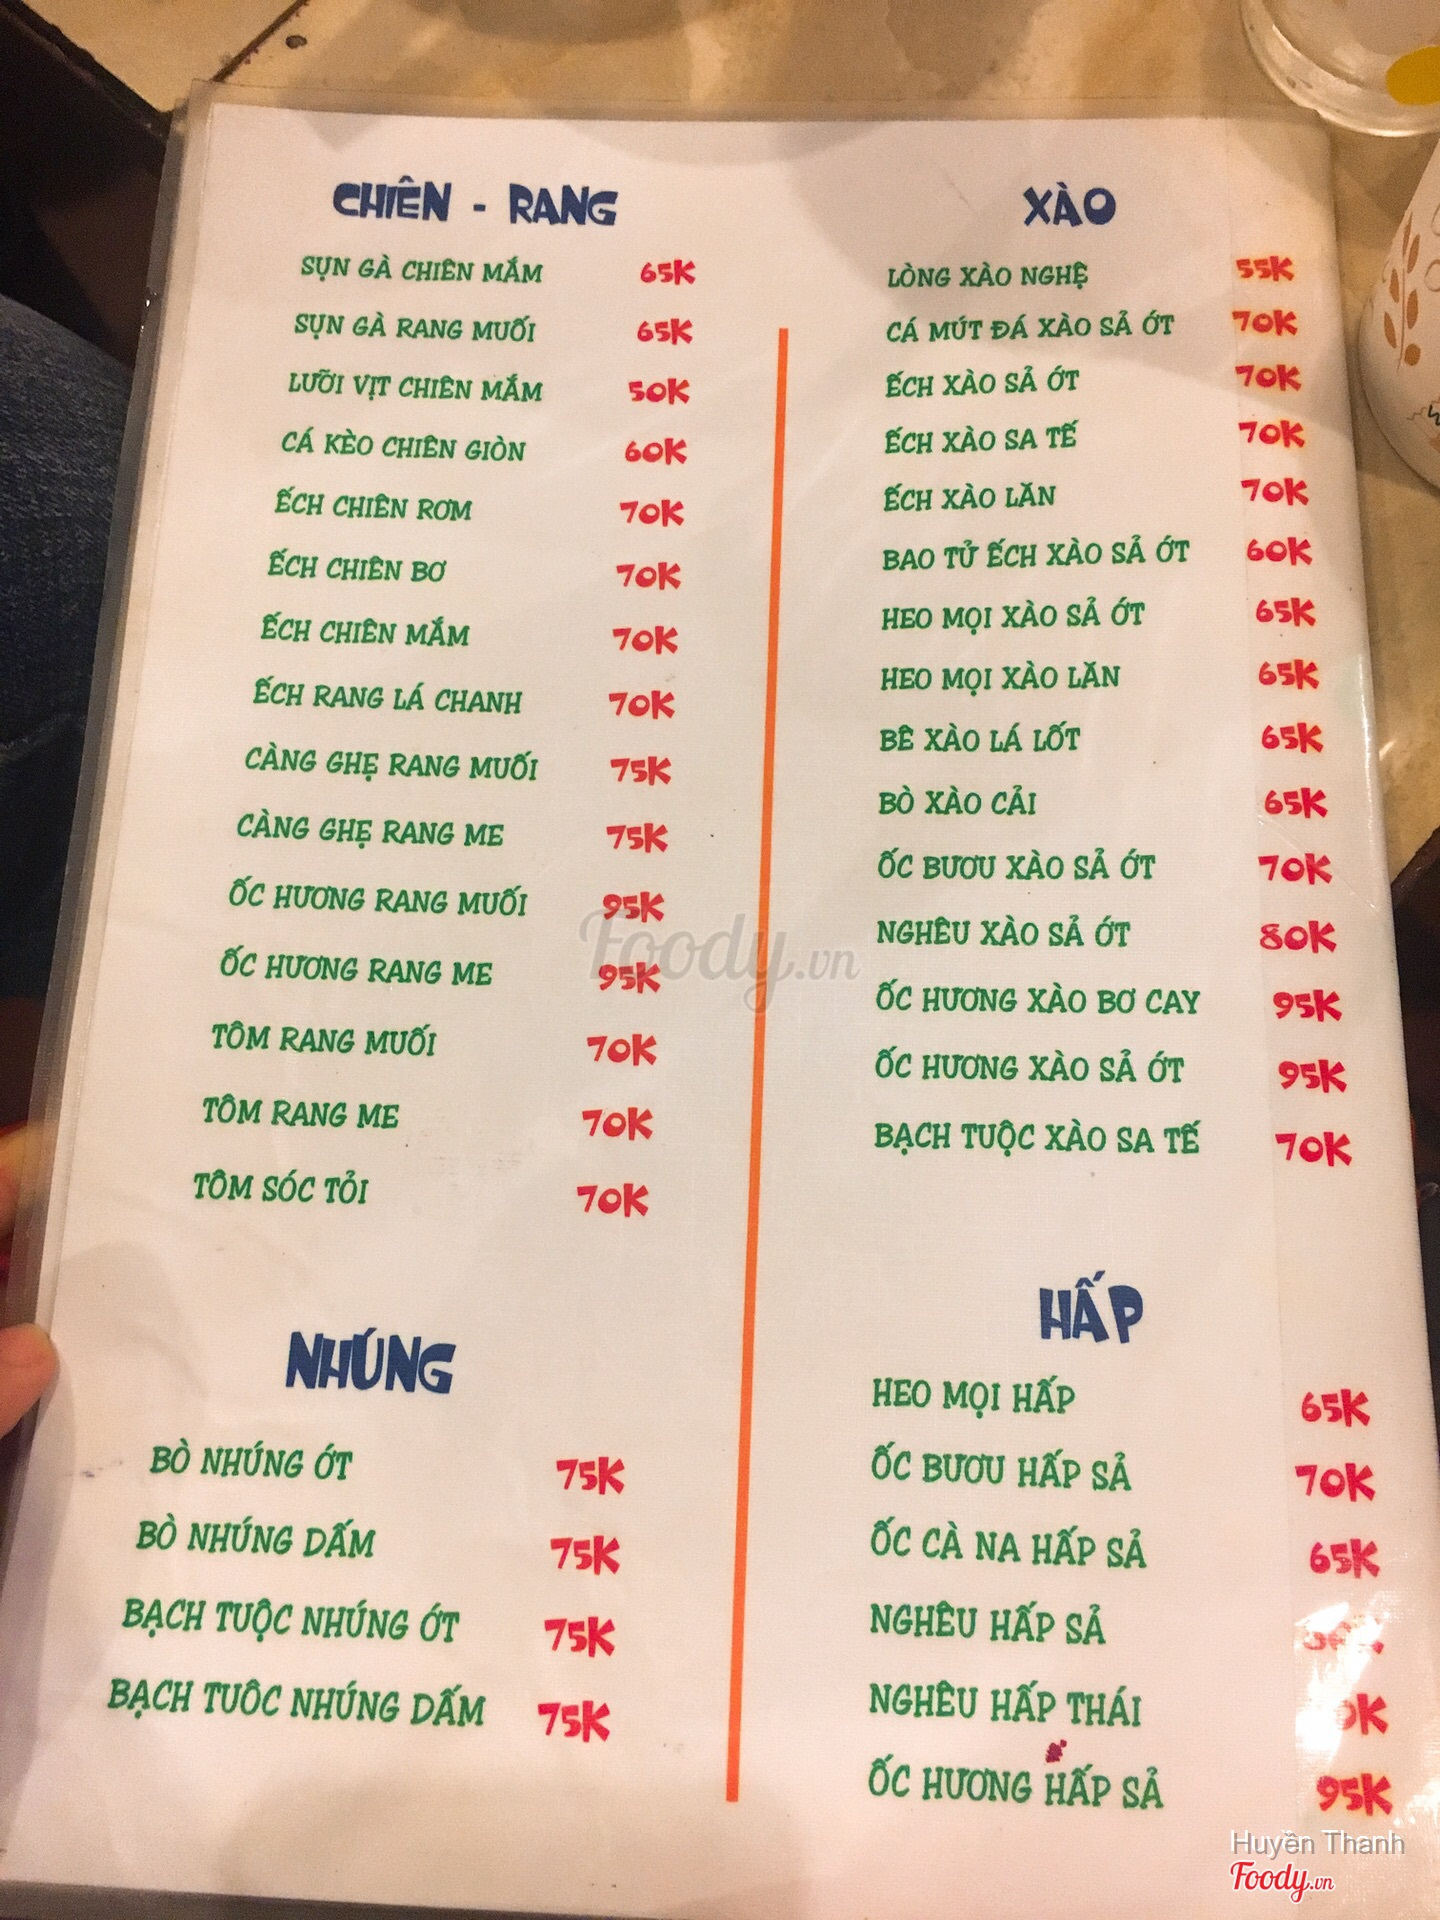 CHIÊN - RANG
SỤN GÀ CHIÊN MẮM 65K
SỤN GÀ RANG MUỐI 65K
LƯỠI VỊT CHIÊN MẮM 50K
CÁ KÈO CHIÊN GIÒN 60K
ẾCH CHIÊN RƠM 70K
ẾCH CHIÊN BƠ 70K
ẾCH CHIÊN MẮM 70K
ẾCH RANG LÁ CHANH 70K
CÀNG GHẸ RANG MUỐI 75K
CÀNG GHẸ RANG ME 75K
ỐC HƯƠNG RANG MUỐI 95K
ỐC HƯƠNG RANG ME 95K
TÔM RANG MUỐI 70K
TÔM RANG ME 70K
TÔM SÓC TỎI 70K
NHÚNG
BÒ NHÚNG ỚT 75K
BÒ NHÚNG DẤM 75K
BẠCH TUỘC NHÚNG ỚT 75K
BẠCH TUÔC NHÚNG DẤM 75K
XÀO
LÒNG XÀO NGHỆ 55K
CÁ MÚT ĐÁ XÀO SẢ ỚT 70K
ẾCH XÀO SẢ ỚT 70K
ẾCH XÀO SA TẾ 70K
ẾCH XÀO LĂN 70K
BAO TỬ ẾCH XÀO SẢ ỚT 60K
HEO MỌI XÀO SẢ ỚT 65K
HEO MỌI XÀO LĂN 65K
BÊ XÀO LÁ LỐT 65K
BÒ XÀO CẢI 65K
ỐC BƯƠU XÀO SẢ ỚT 70K
NGHÊU XÀO SẢ ỚT 80K
ỐC HƯƠNG XÀO BƠ CAY 95K
ỐC HƯƠNG XÀO SẢ ỚT 95K
BẠCH TUỘC XÀO SA TẾ 70K
HẤP
HEO MỌI HẤP 65K
ỐC BƯƠU HẤP SẢ 70K
ỐC CÀ NA HẤP SẢ 65K
NGHÊU HẤP SẢ
NGHÊU HẤP THÁI
ỐC HƯƠNG HẤP SẢ 95K
Foody.vn
Huyền Thanh
Foody.vn